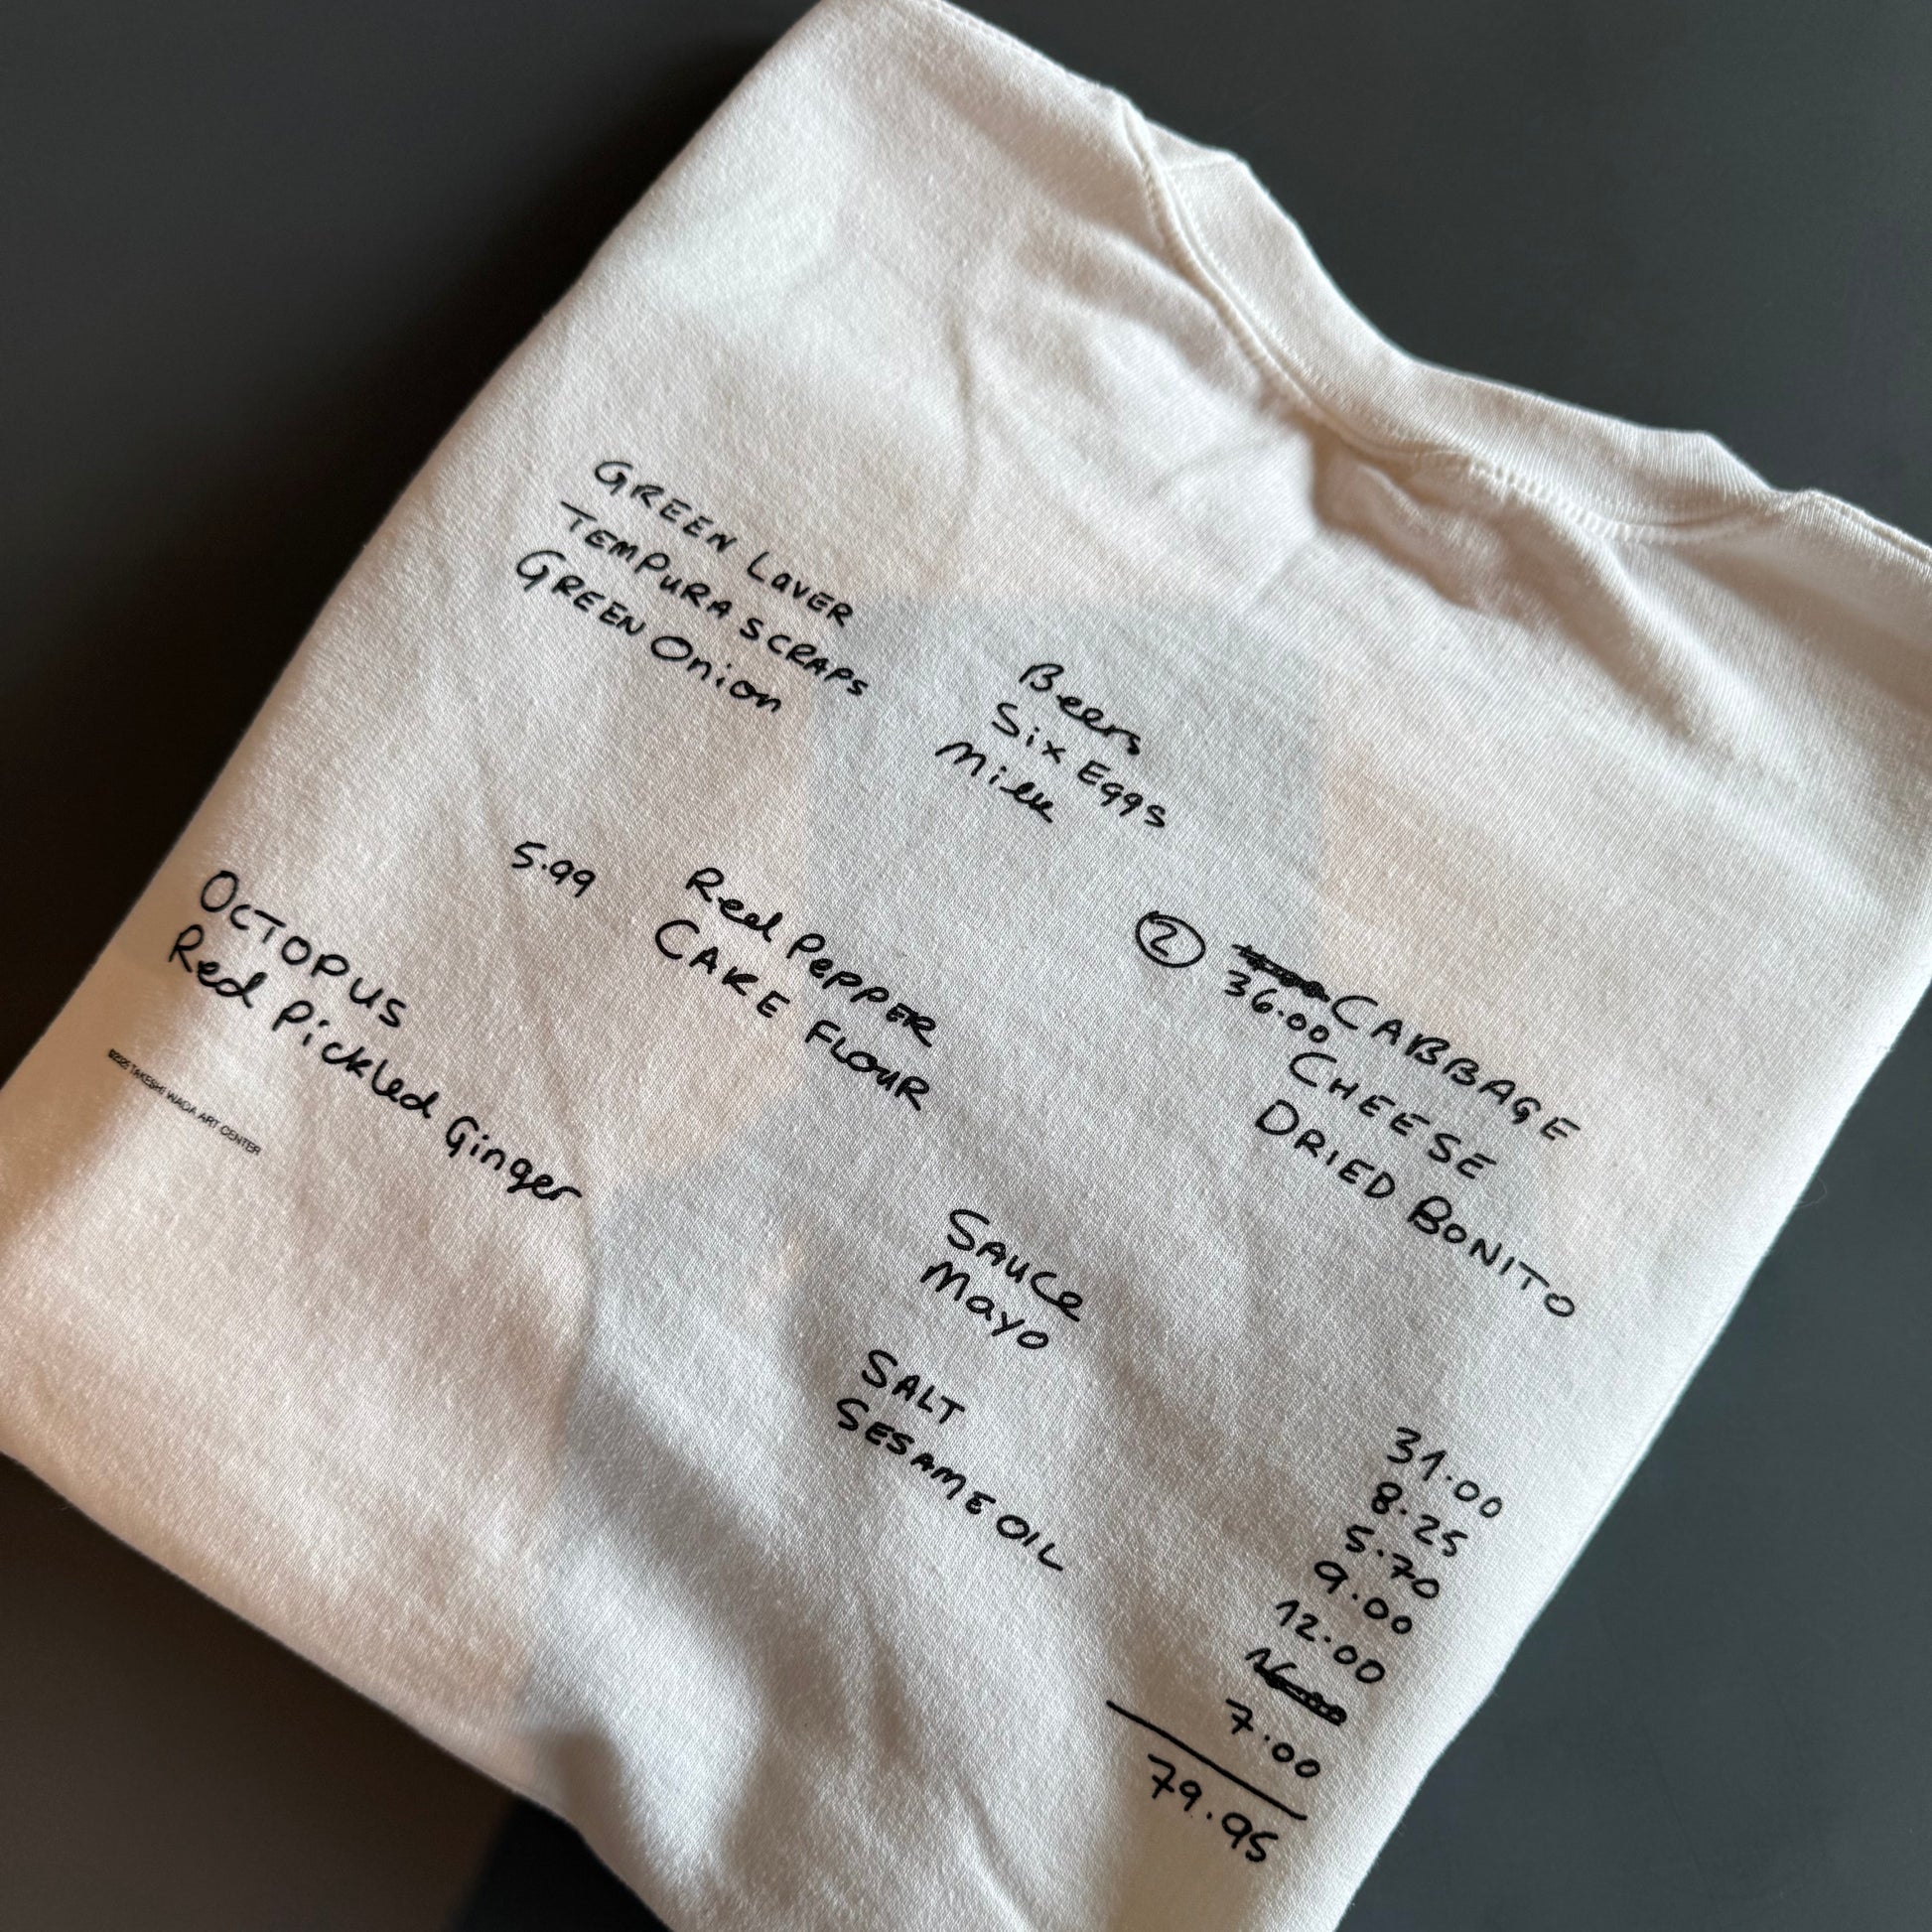 GREEN LAVER
TEMPURA SCRAPS
GREEN Onion
Beers
Six Eggs
Milk
5.99
Red PePPER
CAKE FLOUR
OCTOPUS
Red Pickled Ginger
©2025 TAKESHI WADA ART CENTER
2
36.00
CABBAGE
CHEESE
DRIED BONITO
SAUCe
Mayo
SALT
SESAME OIL
31.00
8.25
5.70
9.00
12.00
7.00
79.95